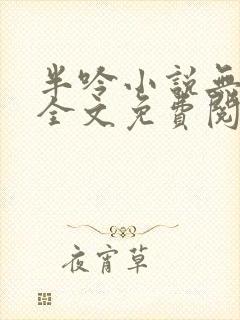 半吟小說無
全文免費閱
夜宵草